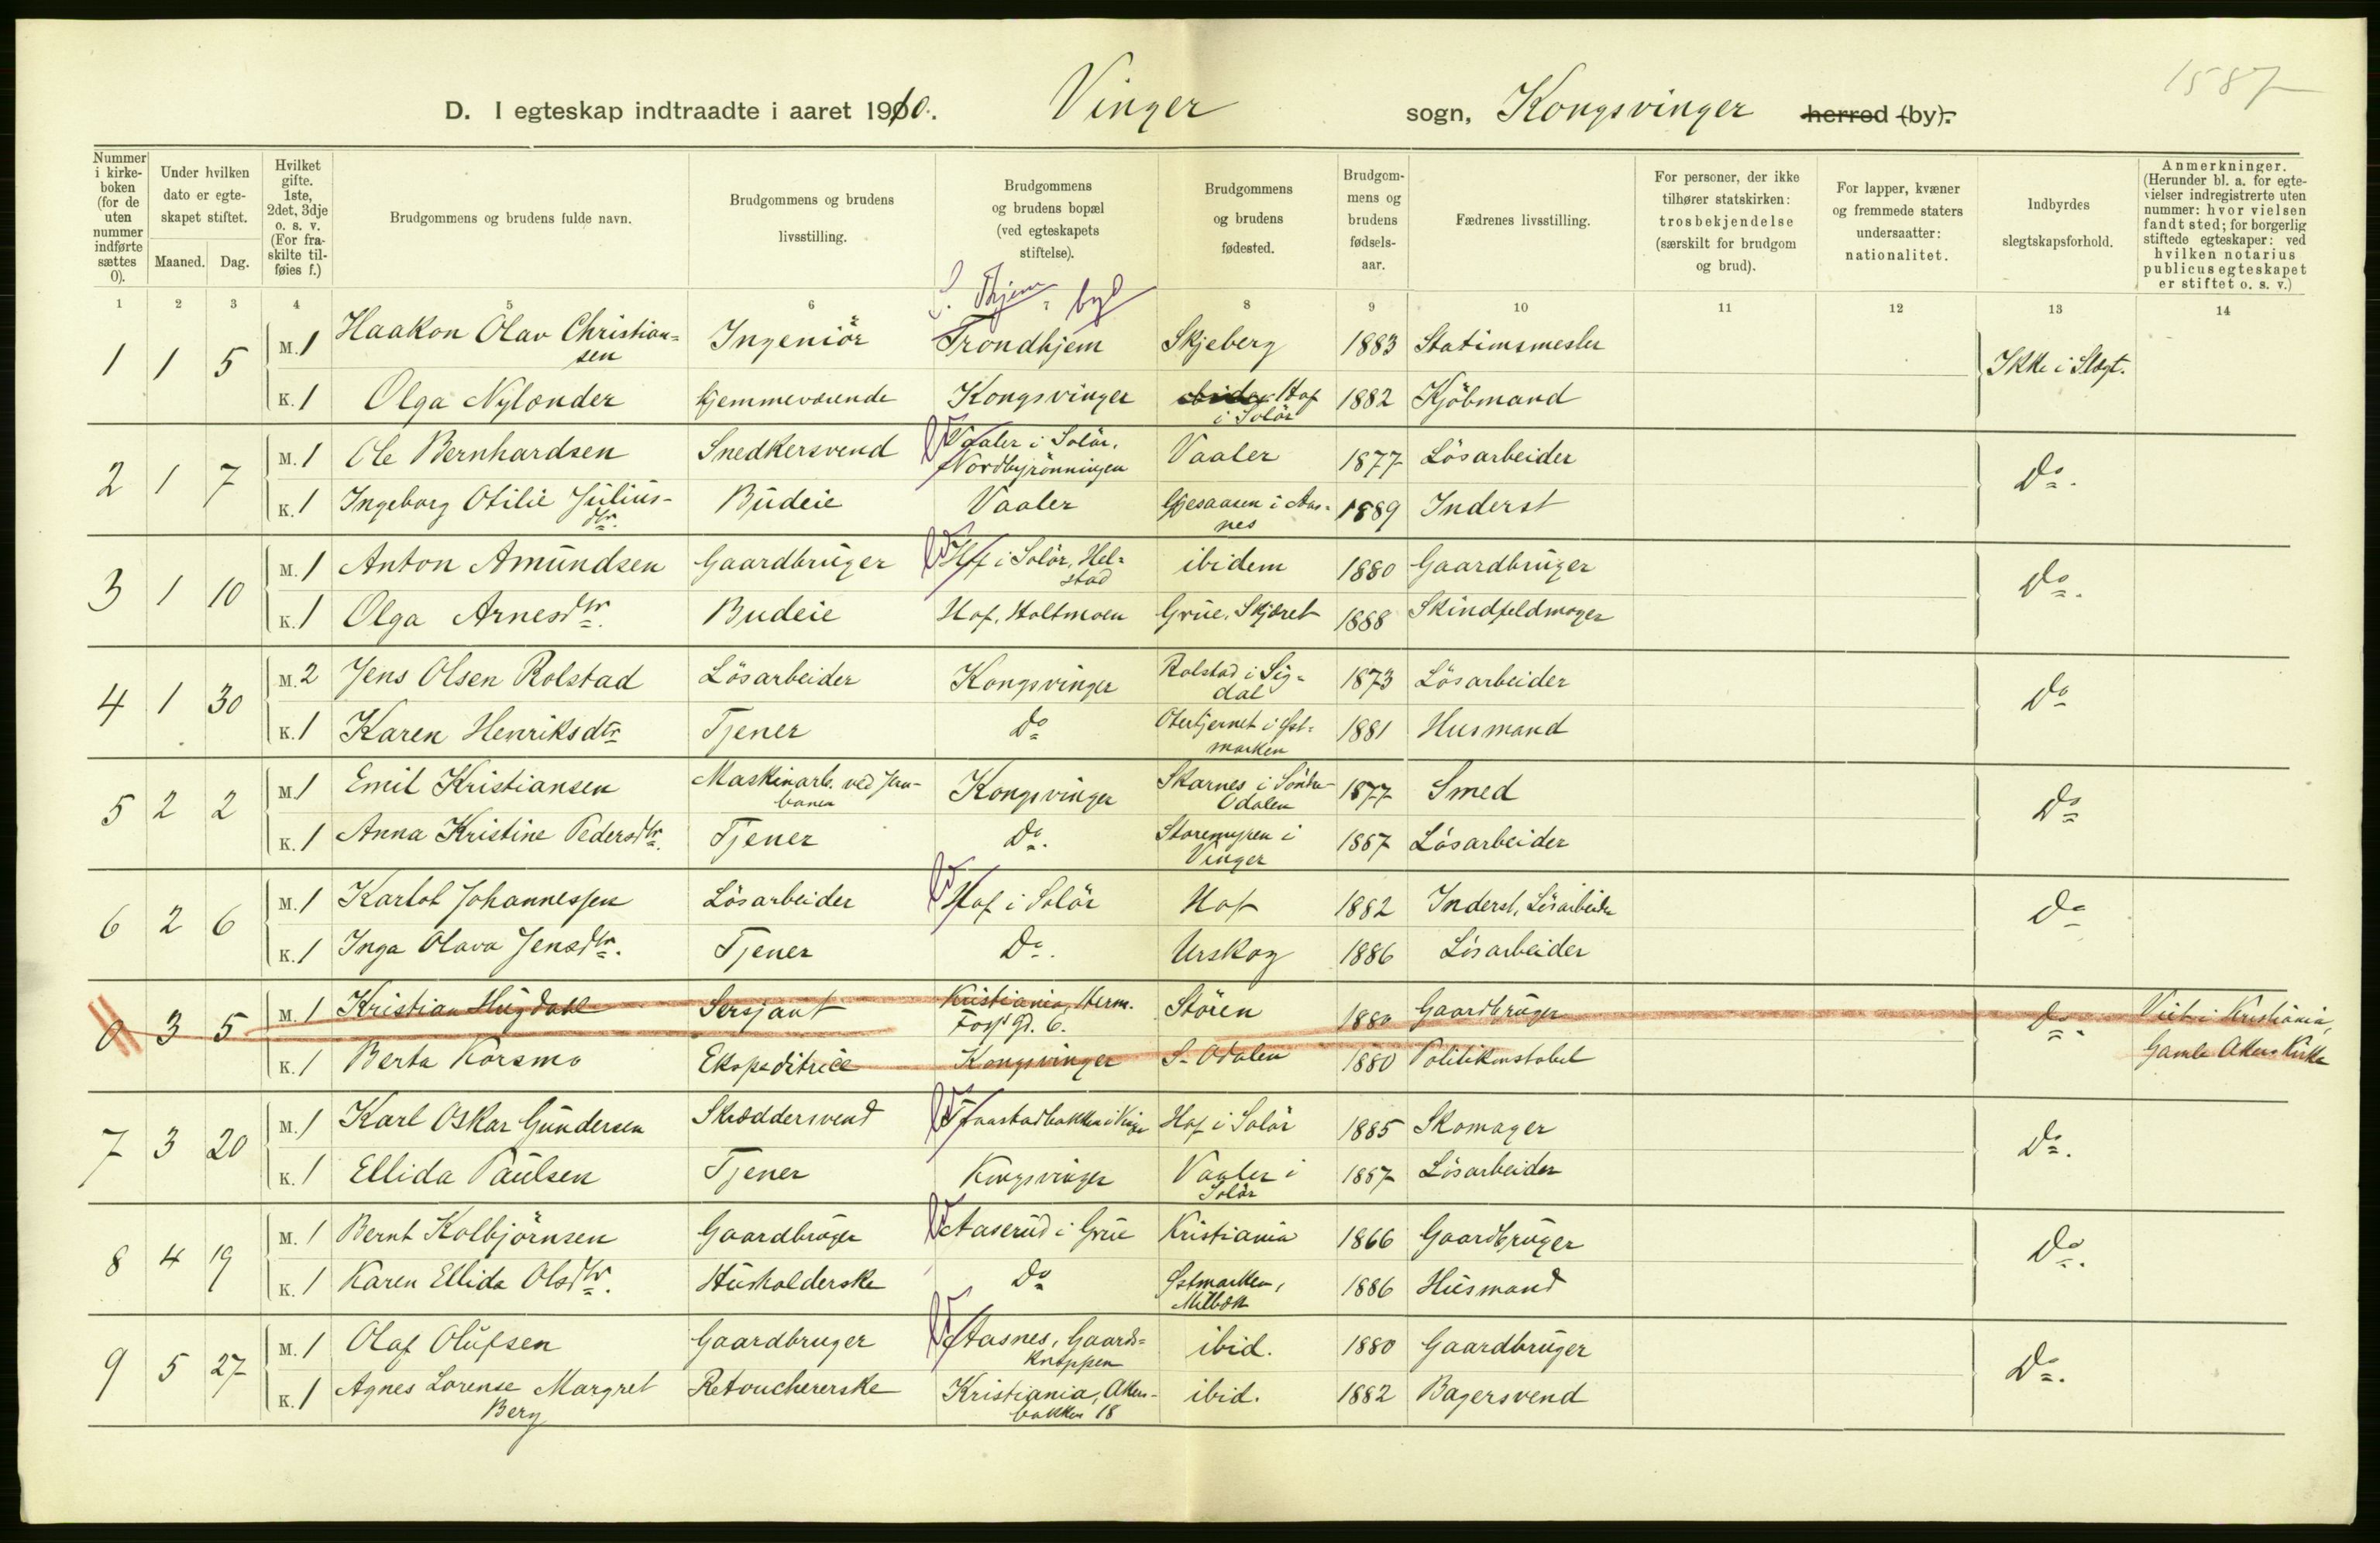 1587
D. I egteskap indtraadte i aaret 1910. Vinger sogn, Kongsvinger herred (by).
Nummer i kirkeboken (for de uten nummer indførte sættes 0).
Under hvilken dato er egteskapet stiftet.
Maaned. Dag.
Hvilket gifte. 1ste, 2det, 3dje o. s. v. (For fraskilte tilføies f.)
Brudgommens og brudens fulde navn.
Brudgommens og brudens livsstilling.
Brudgommens og brudens bopæl (ved egteskapets stiftelse).
Brudgommens og brudens fødested.
Brudgommens og brudens fødselsaar.
Fædrenes livsstilling.
For personer, der ikke tilhører statskirken: trosbekjendelse (særskilt for brudgom og brud).
For lapper, kvæner og fremmede staters undersaatter: nationalitet.
Indbyrdes slegtskapsforhold.
Anmerkninger. (Herunder bl. a. for egtevielser indregistrerte uten nummer: hvor vielsen fandt sted; for borgerlig stiftede egteskaper: ved hvilken notarius publicus egteskapet er stiftet o. s. v.)
1 2 3 4 5 6 7 8 9 10 11 12 13 14
S. Thjem byd
1 1 5 M. 1 Haakon Olav Christiansen Ingeniör Trondhjem Skjeberg 1883 Stationsmester Ikke i Slegt.
K. 1 Olga Nylander Hjemmeværende Kongsvinger Hof i Solör 1882 Kjöbmand
2 1 7 M. 1 Ole Bernhardsen Snedkersvend Vaaler i Solör, Nordbyrönningen Vaaler 1877 Lösarbeider Do.
K. 1 Ingeborg Otilie Juliusdtr. Budeie Vaaler Gjesaasen i Aasnes 1889 Inderst
3 1 10 M. 1 Anton Amundsen Gaardbruger Hof i Solör, Helstad ibidem 1880 Gaardbruger Do.
K. 1 Olga Arnesdtr. Budeie Hof, Holtmoen Grue, Skjæret 1888 Skindfeldmager
4 1 30 M. 2 Jens Olsen Rolstad Lösarbeider Kongsvinger Rolstad i Sigdal 1873 Lösarbeider Do
K. 1 Karen Henriksdtr Tjener Do Obertjernet i Østmarken 1881 Husmand
5 2 2 M. 1 Emil Kristiansen Maskinarb. ved Jernbanen Kongsvinger Skarnes i Söndre Odalen 1877 Smed Do
K. 1 Anna Kristine Pedersdtr. Tjener Do. Storemyren i Vinger 1887 Lösarbeider
6 2 6 M. 1 Karlot Johannessen Lösarbeider Hof i Solör Hof 1882 Inderst, Lösarbeider Do
K. 1 Inga Olava Jensdtr. Tjener Do. Urskog 1886 Lösarbeider
0 3 5 M. 1 Kristian Hugdahl Sersjant Kristiania, Herm. Foss gd. 6. Stören 1880 Gaardbruger Do. Viet i Kristiania, Gamle Akers Kirke
K. 1 Berta Korsmo Ekspeditrice Kongsvinger S. Odalen 1880 Politikonstabel
7 3 20 M. 1 Karl Oskar Gundersen Skræddersvend i Vinger Hof i Solör 1885 Skomager Do.
K. 1 Ellida Paulsen Tjener Kongsvinger Vaaler i Solör 1887 Lösarbeider
8 4 19 M. 1 Bernt Kolbjörnsen Gaardbruger Aaserud i Grue Kristiania 1866 Gaardbruger Do.
K. 1 Karen Ellida Olsdtr. Husholderske Do Østmarken, Milbæk 1886 Husmand
9 5 27 M. 1 Olaf Olufsen Gaardbruger Aasnes, Gaardsknappen ibid. 1880 Gaardbruger Do.
K. 1 Agnes Lorense Margret Berg Retouchererske Kristiania, Akersbakken 18 ibid. 1882 Bagersvend